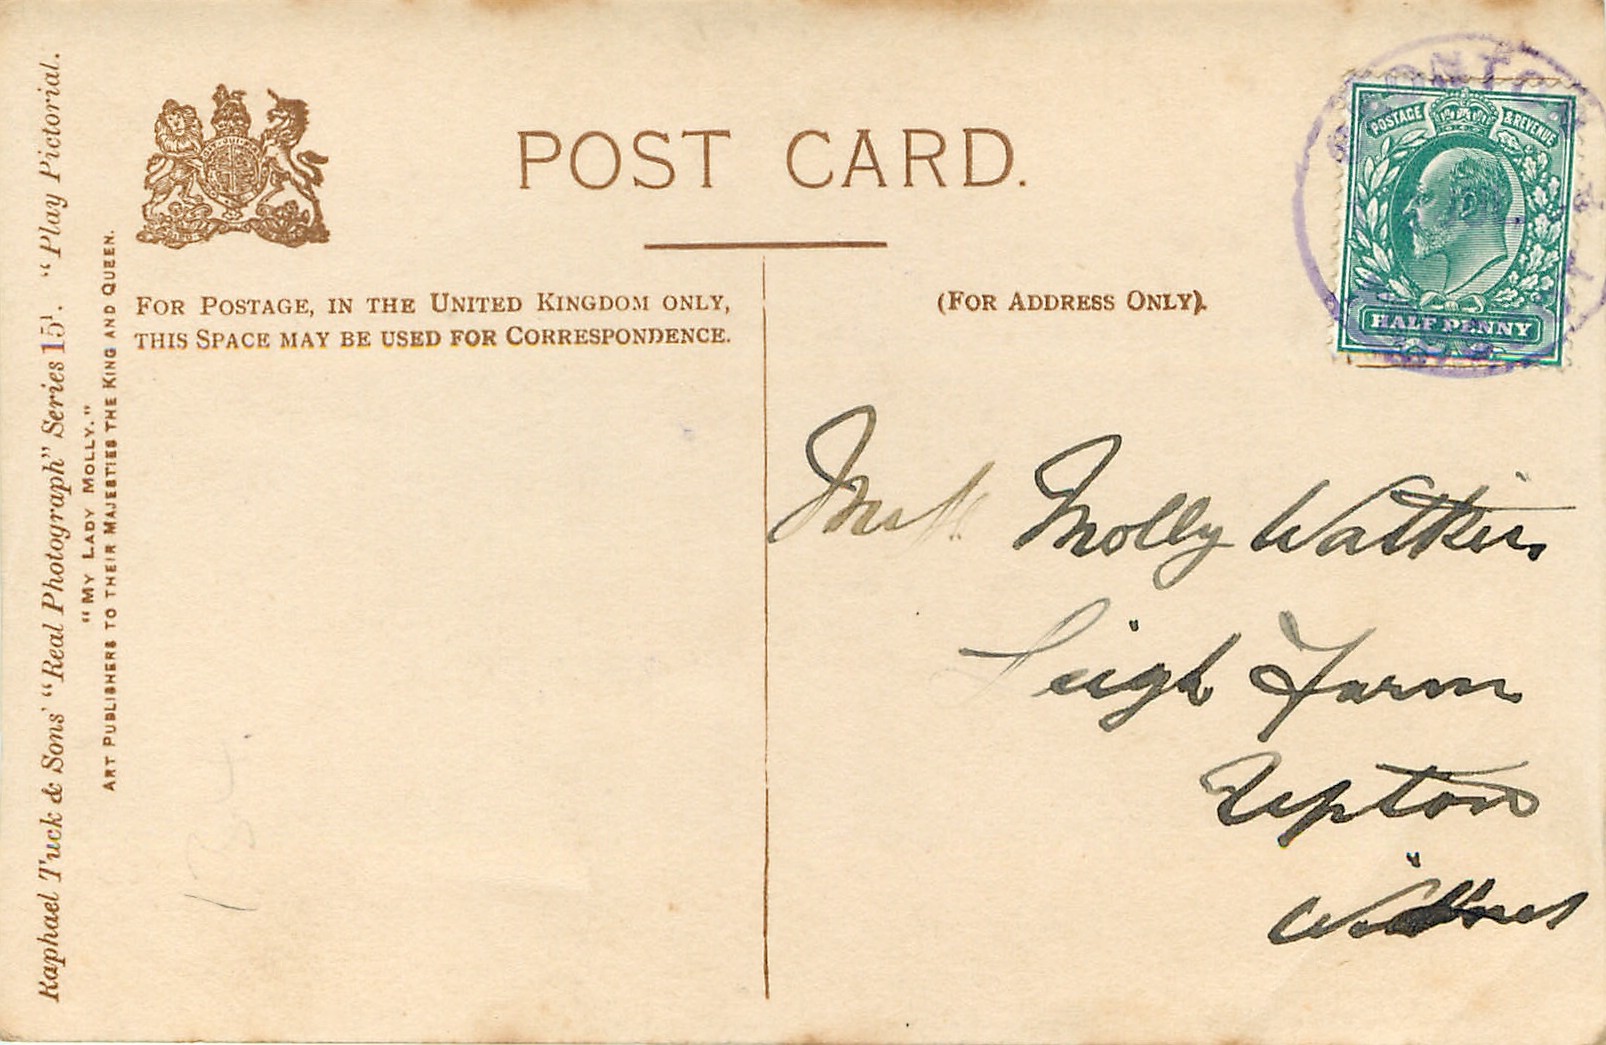 Raphael Tuck & Sons' "Real Photograph" Series 151. "Play Pictorial.
"MY LADY MOLLY."
ART PUBLISHERS TO THEIR MAJESTIES THE KING AND QUEEN.
POST CARD.
FOR POSTAGE, IN THE UNITED KINGDOM ONLY,
THIS SPACE MAY BE USED FOR CORRESPONDENCE.
(FOR ADDRESS ONLY).
POSTAGE & REVENUE
HALF PENNY
Miss Molly Watkins
Leigh Farm
Upton
Widnes